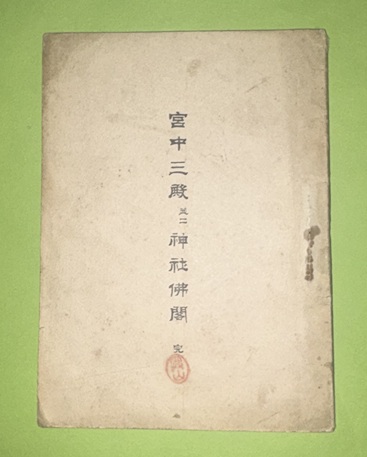 宮中三殿並ニ神社佛閣 完